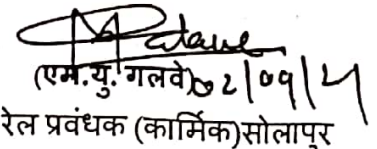 (एम.यु. गलवे) 02/09/21
रेल प्रवंधक (कार्मिक)सोलापुर